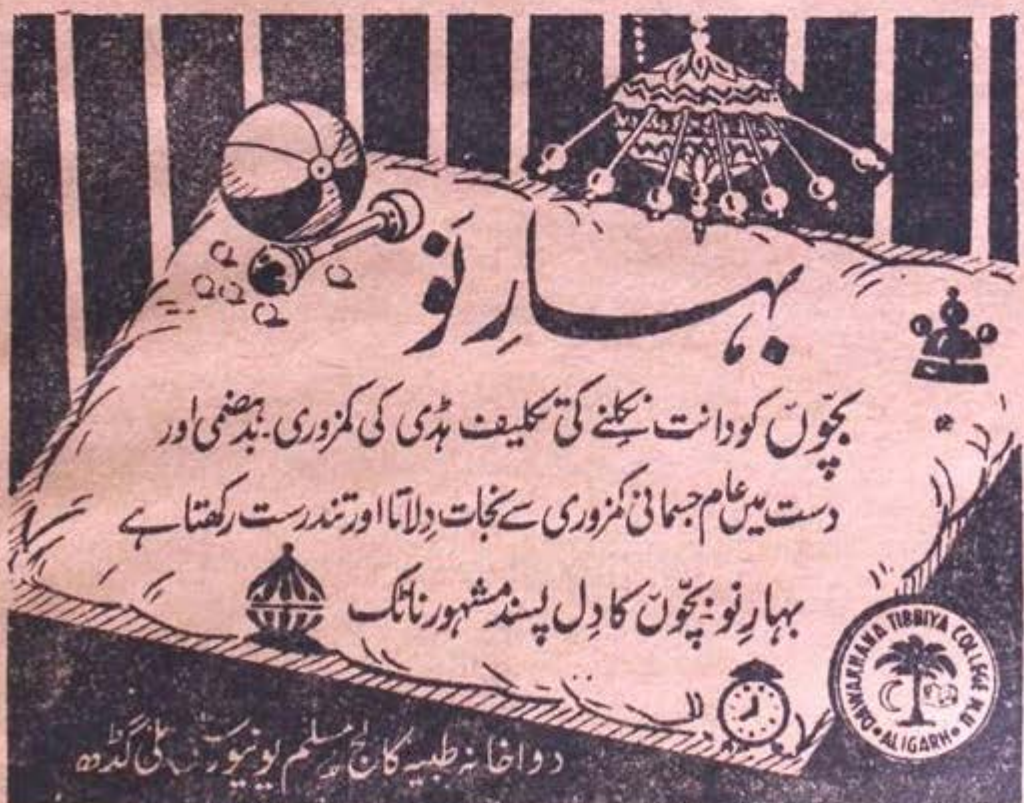 بہارِ نَو
بچّوں کو دانت نکلنے کی تکلیف ہڈی کی کمزوری۔ بدہضمی اور
دست میں عام جسمانی کمزوری سے نجات دِلاتا اور تندرست رکھتا ہے
بہارِ نو:۔ بچّوں کا دِل پسند مشہور ناٹک
DAWAKHANA TIBBIYA COLLEGE M.U. ALIGARH
دواخانہ طبیہ کالج مسلم یونیورسٹی علی گڈھ